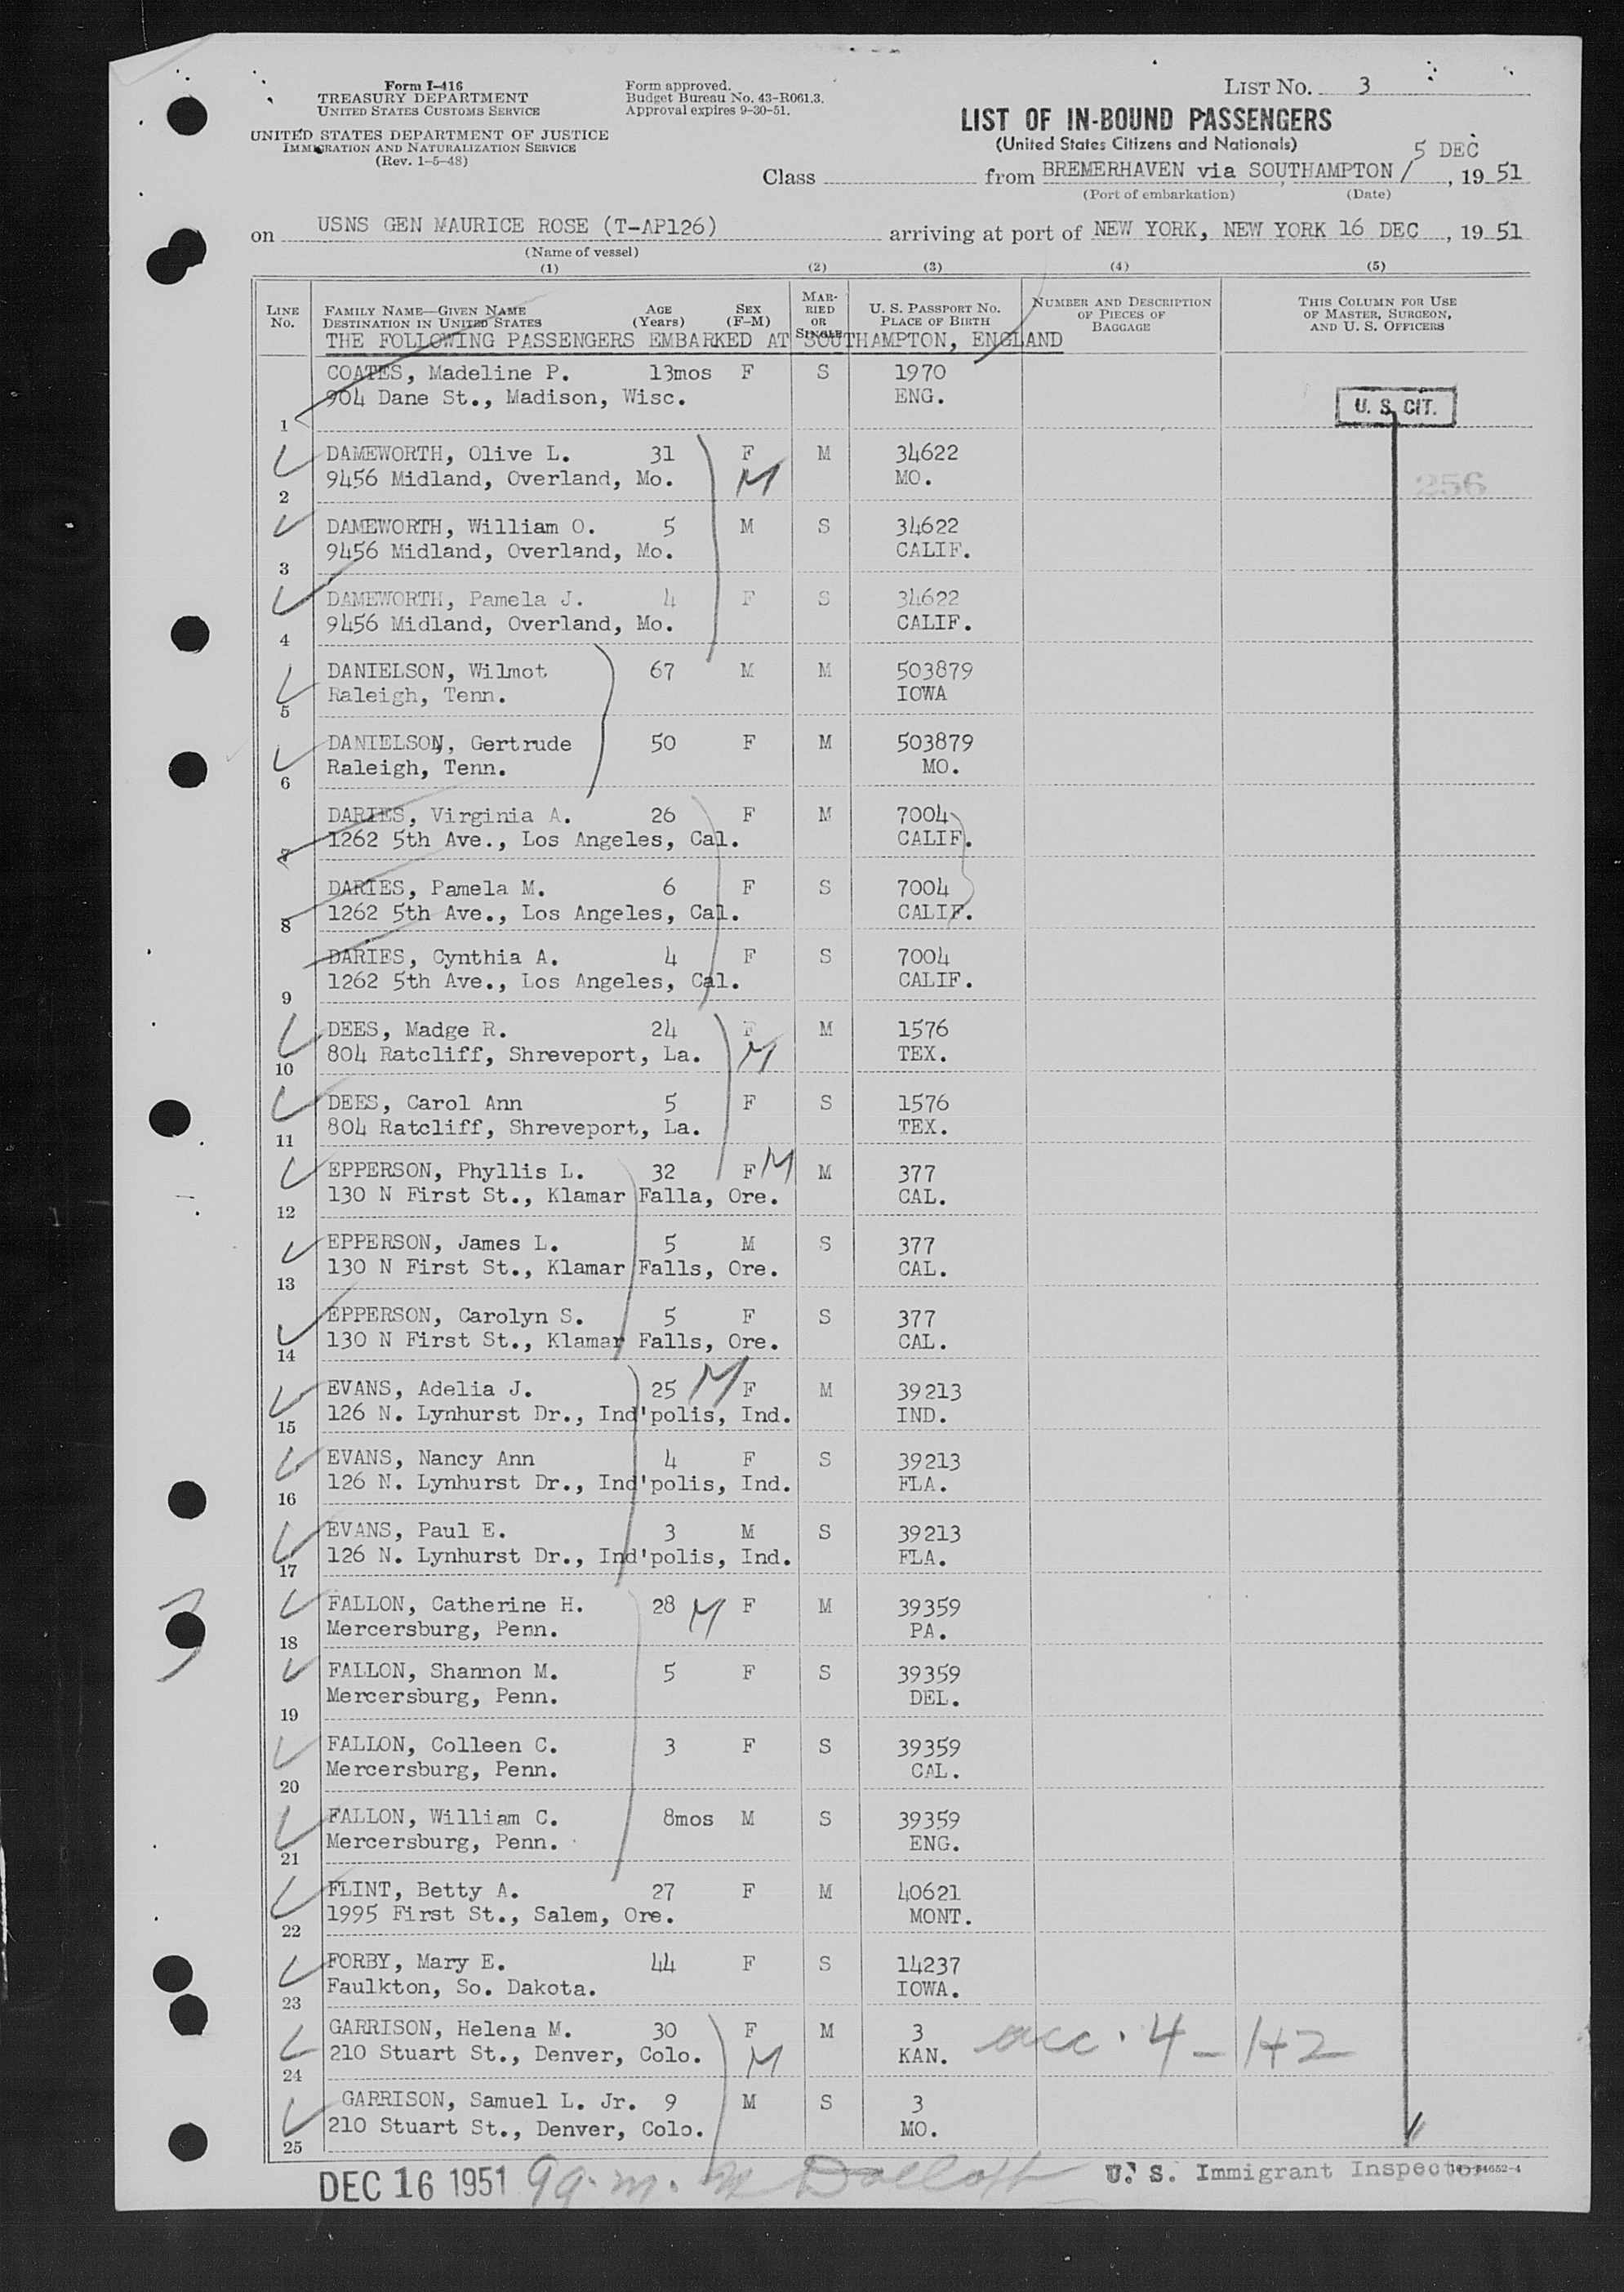 Form I-416
TREASURY DEPARTMENT
UNITED STATES CUSTOMS SERVICE
UNITED STATES DEPARTMENT OF JUSTICE
IMMIGRATION AND NATURALIZATION SERVICE
(Rev. 1-5-48)
Form approved.
Budget Bureau No. 43-R061.3.
Approval expires 9-30-51.
LIST NO. 3
LIST OF IN-BOUND PASSENGERS
(United States Citizens and Nationals)
Class from BREMERHAVEN via SOUTHAMPTON / 5 DEC, 1951
(Port of embarkation) (Date)
on USNS GEN MAURICE ROSE (T-AP126) arriving at port of NEW YORK, NEW YORK 16 DEC, 1951
(Name of vessel)
(1) (2) (3) (4) (5)
LINE NO. FAMILY NAME—GIVEN NAME DESTINATION IN UNITED STATES AGE (Years) SEX (F-M) MARRIED OR SINGLE U. S. PASSPORT NO. PLACE OF BIRTH NUMBER AND DESCRIPTION OF PIECES OF BAGGAGE THIS COLUMN FOR USE OF MASTER, SURGEON, AND U. S. OFFICERS
THE FOLLOWING PASSENGERS EMBARKED AT SOUTHAMPTON, ENGLAND
COATES, Madeline P. 13mos F S 1970
1 904 Dane St., Madison, Wisc. ENG. U. S. CIT.
DAMEWORTH, Olive L. 31 F M 34622
2 9456 Midland, Overland, Mo. M MO. 256
DAMEWORTH, William O. 5 M S 34622
3 9456 Midland, Overland, Mo. CALIF.
DAMEWORTH, Pamela J. 4 F S 34622
4 9456 Midland, Overland, Mo. CALIF.
DANIELSON, Wilmot 67 M M 503879
5 Raleigh, Tenn. IOWA
DANIELSON, Gertrude 50 F M 503879
6 Raleigh, Tenn. MO.
DARIES, Virginia A. 26 F M 7004
7 1262 5th Ave., Los Angeles, Cal. CALIF.
DARIES, Pamela M. 6 F S 7004
8 1262 5th Ave., Los Angeles, Cal. CALIF.
DARIES, Cynthia A. 4 F S 7004
9 1262 5th Ave., Los Angeles, Cal. CALIF.
DEES, Madge R. 24 F M 1576
10 804 Ratcliff, Shreveport, La. M TEX.
DEES, Carol Ann 5 F S 1576
11 804 Ratcliff, Shreveport, La. TEX.
EPPERSON, Phyllis L. 32 F M M 377
12 130 N First St., Klamar Falla, Ore. CAL.
EPPERSON, James L. 5 M S 377
13 130 N First St., Klamar Falls, Ore. CAL.
EPPERSON, Carolyn S. 5 F S 377
14 130 N First St., Klamar Falls, Ore. CAL.
EVANS, Adelia J. 25 M F M 39213
15 126 N. Lynhurst Dr., Ind'polis, Ind. IND.
EVANS, Nancy Ann 4 F S 39213
16 126 N. Lynhurst Dr., Ind'polis, Ind. FLA.
EVANS, Paul E. 3 M S 39213
17 126 N. Lynhurst Dr., Ind'polis, Ind. FLA.
FALLON, Catherine H. 28 M F M 39359
18 Mercersburg, Penn. PA.
FALLON, Shannon M. 5 F S 39359
19 Mercersburg, Penn. DEL.
FALLON, Colleen C. 3 F S 39359
20 Mercersburg, Penn. CAL.
FALLON, William C. 8mos M S 39359
21 Mercersburg, Penn. ENG.
FLINT, Betty A. 27 F M 40621
22 1995 First St., Salem, Ore. MONT.
FORBY, Mary E. 44 F S 14237
23 Faulkton, So. Dakota. IOWA.
GARRISON, Helena M. 30 F M 3 acc. 4 - 142
24 210 Stuart St., Denver, Colo. M KAN.
GARRISON, Samuel L. Jr. 9 M S 3
25 210 Stuart St., Denver, Colo. MO.
DEC 16 1951 U. S. Immigrant Inspector